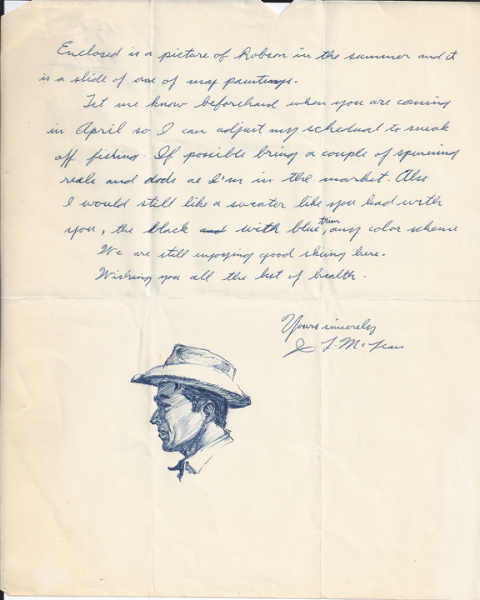 Enclosed is a picture of Robson in the summer and it
is a slide of one of my paintings.
Let me know beforehand when you are coming
in April so I can adjust my schedual to sneak
off fishing. If possible bring a couple of spinning
reels and dods as I'm in the market. Also
I would still like a sweater like you had with
you, the black and with blue trim, any color scheme
We are still enjoying good skiing here.
Wishing you all the best of health.
Yours sincerely
J L McLean